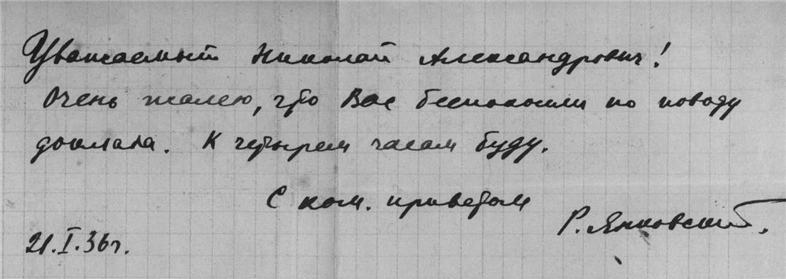 Уважаемый Николай Александрович!
Очень жалею, что Вас беспокоили по поводу
доклада. К четырем часам буду.
С ком. приветом
Р. Янковский.
21.I.36г.